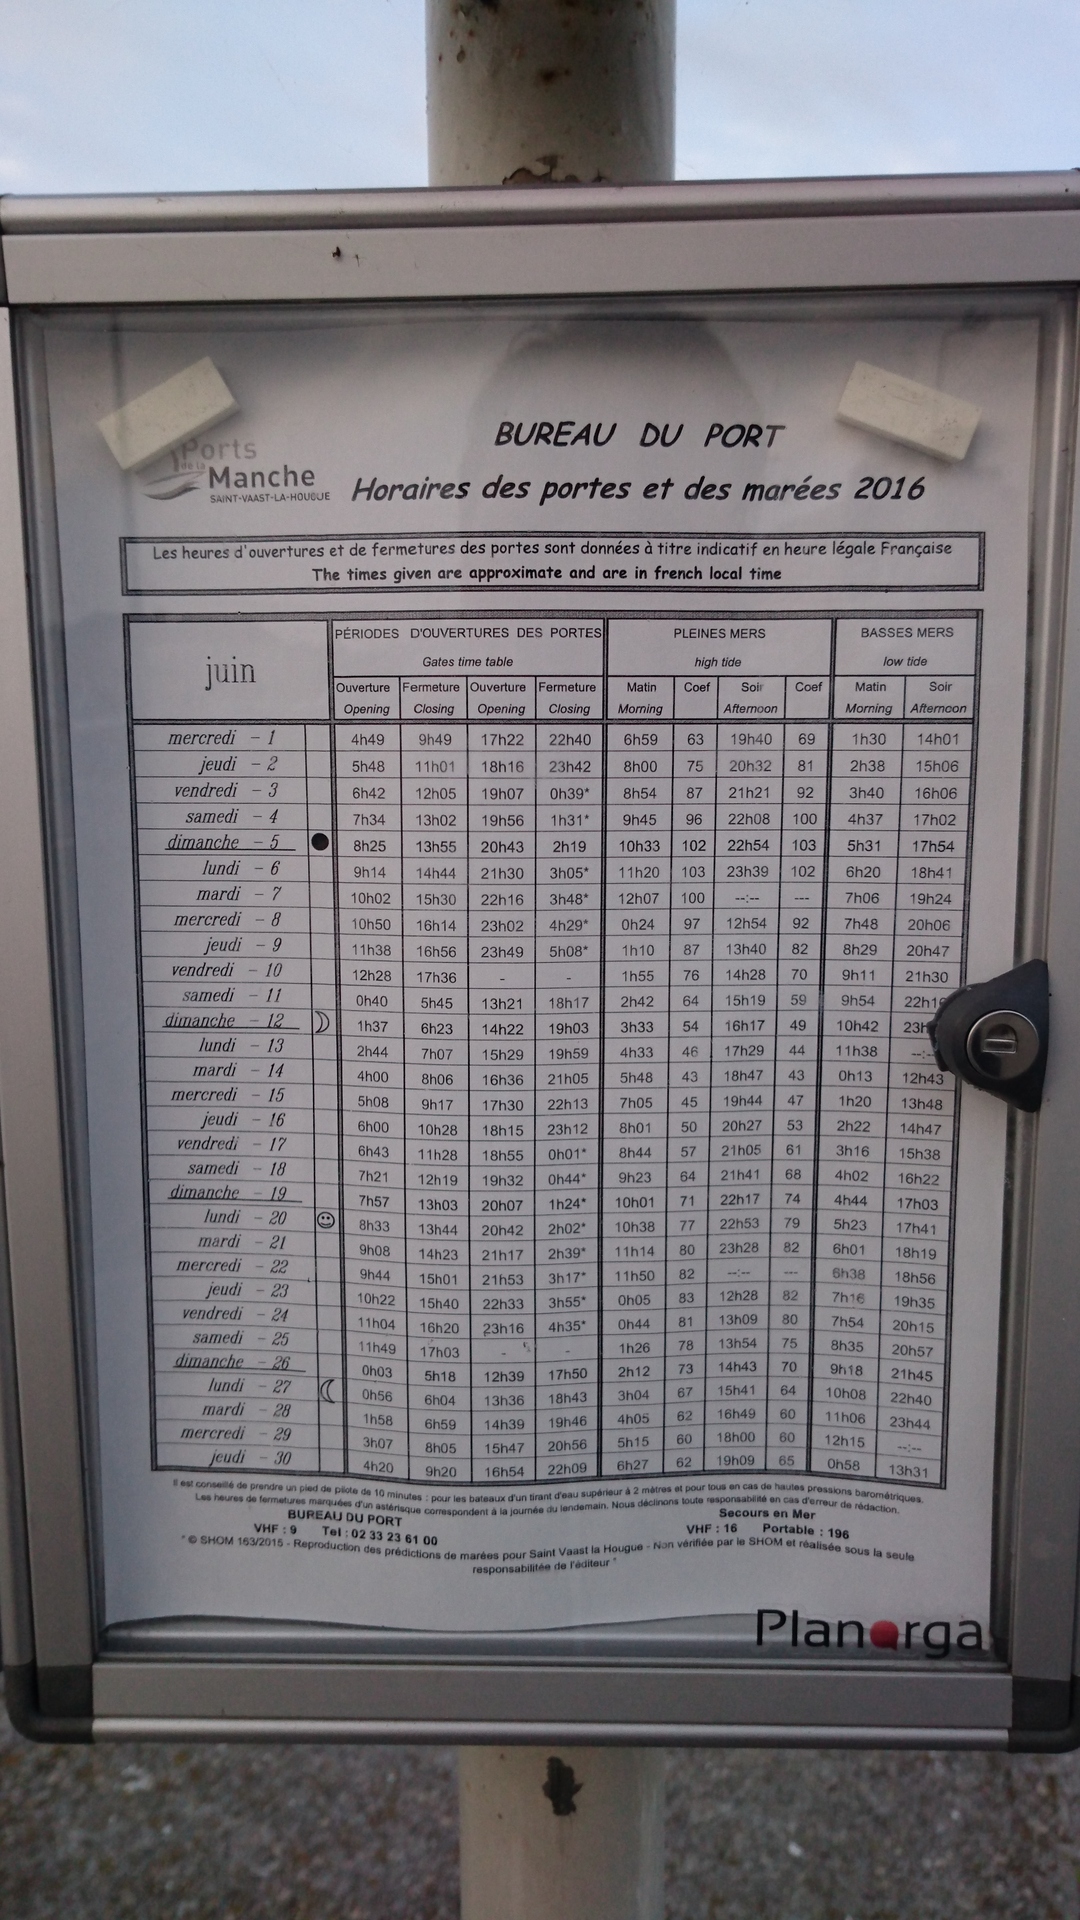 Ports
de la
Manche
SAINT-VAAST-LA-HOUGUE
BUREAU DU PORT
Horaires des portes et des marées 2016
Les heures d'ouvertures et de fermetures des portes sont données à titre indicatif en heure légale Française
The times given are approximate and are in french local time
juin
PÉRIODES D'OUVERTURES DES PORTES PLEINES MERS BASSES MERS
Gates time table high tide low tide
Ouverture Fermeture Ouverture Fermeture Matin Coef Soir Coef Matin Soir
Opening Closing Opening Closing Morning Afternoon Morning Afternoon
mercredi - 1 4h49 9h49 17h22 22h40 6h59 63 19h40 69 1h30 14h01
jeudi - 2 5h48 11h01 18h16 23h42 8h00 75 20h32 81 2h38 15h06
vendredi - 3 6h42 12h05 19h07 0h39* 8h54 87 21h21 92 3h40 16h06
samedi - 4 7h34 13h02 19h56 1h31* 9h45 96 22h08 100 4h37 17h02
dimanche - 5 8h25 13h55 20h43 2h19 10h33 102 22h54 103 5h31 17h54
lundi - 6 9h14 14h44 21h30 3h05* 11h20 103 23h39 102 6h20 18h41
mardi - 7 10h02 15h30 22h16 3h48* 12h07 100 --:-- --- 7h06 19h24
mercredi - 8 10h50 16h14 23h02 4h29* 0h24 97 12h54 92 7h48 20h06
jeudi - 9 11h38 16h56 23h49 5h08* 1h10 87 13h40 82 8h29 20h47
vendredi - 10 12h28 17h36 - - 1h55 76 14h28 70 9h11 21h30
samedi - 11 0h40 5h45 13h21 18h17 2h42 64 15h19 59 9h54
dimanche - 12 1h37 6h23 14h22 19h03 3h33 54 16h17 49 10h42
lundi - 13 2h44 7h07 15h29 19h59 4h33 46 17h29 44 11h38 --:--
mardi - 14 4h00 8h06 16h36 21h05 5h48 43 18h47 43 0h13 12h43
mercredi - 15 5h08 9h17 17h30 22h13 7h05 45 19h44 47 1h20 13h48
jeudi - 16 6h00 10h28 18h15 23h12 8h01 50 20h27 53 2h22 14h47
vendredi - 17 6h43 11h28 18h55 0h01* 8h44 57 21h05 61 3h16 15h38
samedi - 18 7h21 12h19 19h32 0h44* 9h23 64 21h41 68 4h02 16h22
dimanche - 19 7h57 13h03 20h07 1h24* 10h01 71 22h17 74 4h44 17h03
lundi - 20 8h33 13h44 20h42 2h02* 10h38 77 22h53 79 5h23 17h41
mardi - 21 9h08 14h23 21h17 2h39* 11h14 80 23h28 82 6h01 18h19
mercredi - 22 9h44 15h01 21h53 3h17* 11h50 82 --:-- --- 6h38 18h56
jeudi - 23 10h22 15h40 22h33 3h55* 0h05 83 12h28 82 7h16 19h35
vendredi - 24 11h04 16h20 23h16 4h35* 0h44 81 13h09 80 7h54 20h15
samedi - 25 11h49 17h03 - - 1h26 78 13h54 75 8h35 20h57
dimanche - 26 0h03 5h18 12h39 17h50 2h12 73 14h43 70 9h18 21h45
lundi - 27 0h56 6h04 13h36 18h43 3h04 67 15h41 64 10h08 22h40
mardi - 28 1h58 6h59 14h39 19h46 4h05 62 16h49 60 11h06 23h44
mercredi - 29 3h07 8h05 15h47 20h56 5h15 60 18h00 60 12h15 --:--
jeudi - 30 4h20 9h20 16h54 22h09 6h27 62 19h09 65 0h58 13h31
Il est conseillé de prendre un pied de pilote de 10 minutes : pour les bateaux d'un tirant d'eau supérieur à 2 mètres et pour tous en cas de hautes pressions barométriques.
Les heures de fermetures marquées d'un astérisque correspondent à la journée du lendemain. Nous déclinons toute responsabilité en cas d'erreur de rédaction.
BUREAU DU PORT Secours en Mer
VHF : 9 Tel : 02 33 23 61 00 VHF : 16 Portable : 196
" © SHOM 163/2015 - Reproduction des prédictions de marées pour Saint Vaast la Hougue - Non vérifiée par le SHOM et réalisée sous la seule
responsabilitée de l'éditeur "
Planorga